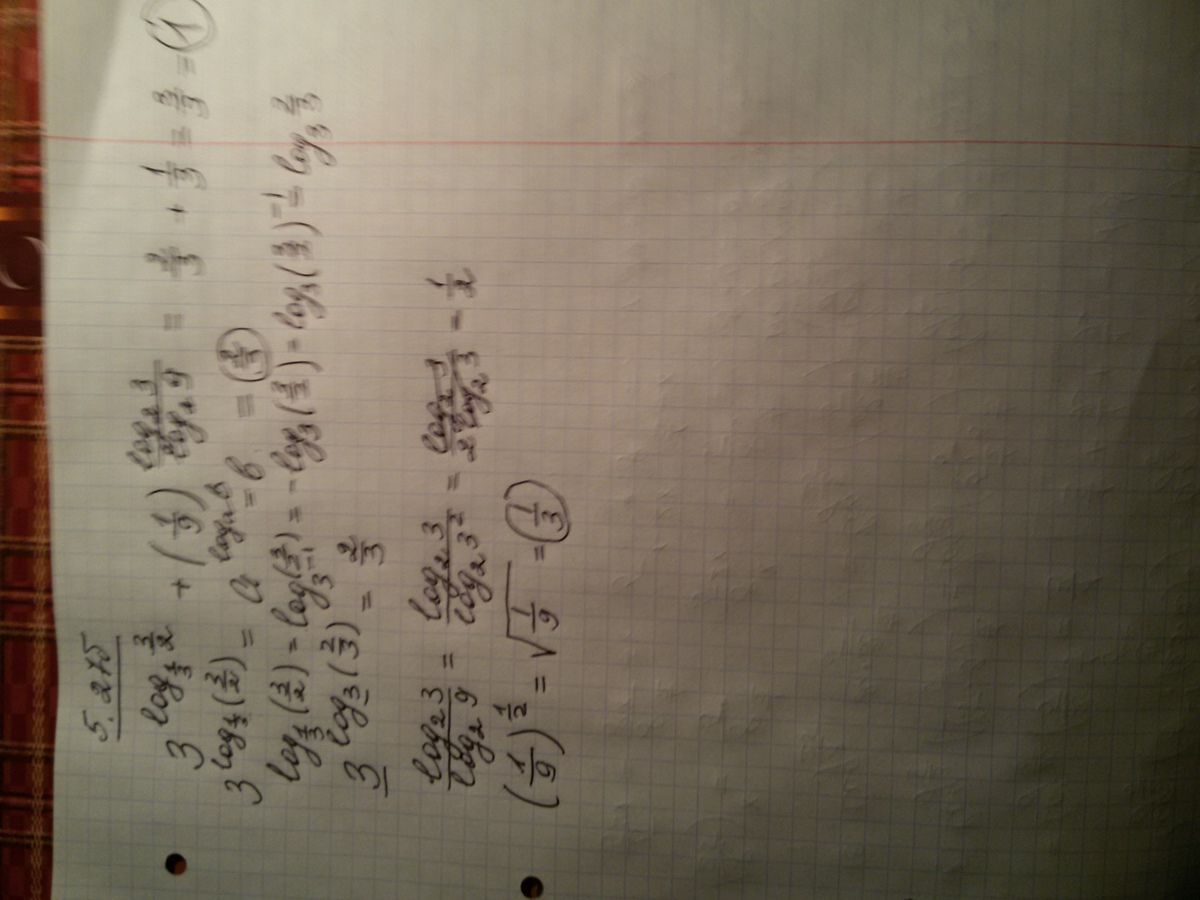 5.275
3^(log_(1/3) 3/2) + (1/9)^((log_2 3)/(log_2 9)) = 2/3 + 1/3 = 3/3 = 1
3^(log_(1/3) (3/2)) = a^(log_a b) = b = 2/3
log_(1/3) (3/2) = log_(3^-1) (3/2) = -log_3 (3/2) = log_3 (3/2)^-1 = log_3 2/3
3^(log_3 (2/3)) = 2/3
(log_2 3)/(log_2 9) = (log_2 3)/(log_2 3^2) = (log_2 3)/(2 log_2 3) = 1/2
(1/9)^(1/2) = √(1/9) = 1/3